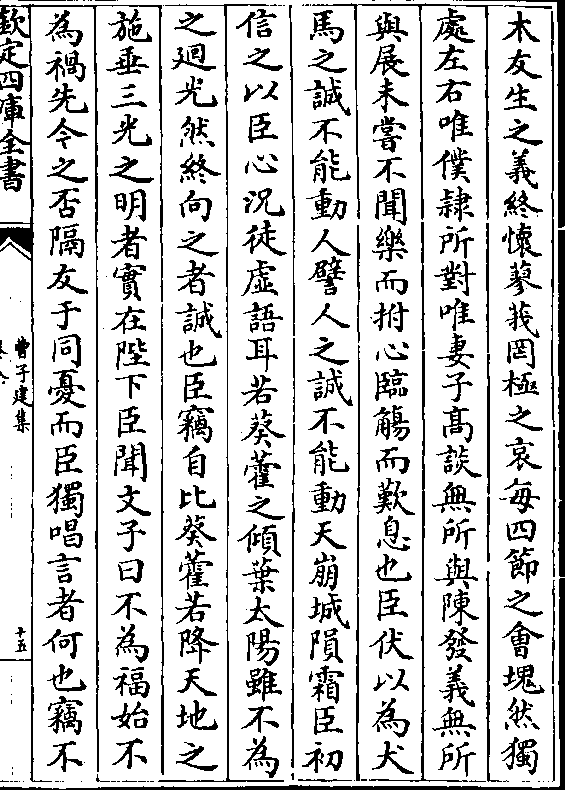 木友生之義終懷蓼莪罔極之哀每四節之會塊然獨
處左右唯僕隷所對唯妻子髙談無所與陳發義無所
與展未嘗不聞樂而拊心臨觴而歎息也臣伏以為犬
馬之誠不能動人譬人之誠不能動天崩城隕霜臣初
信之以臣心况徒虚語耳若葵藿之傾葉太陽雖不為
之廻光然終向之者誠也臣竊自比葵藿若降天地之
施垂三光之明者實在陛下臣聞文子曰不為福始不
為禍先今之否隔友于同憂而臣獨唱言者何也竊不
欽定四庫全書
曹子建集
十五